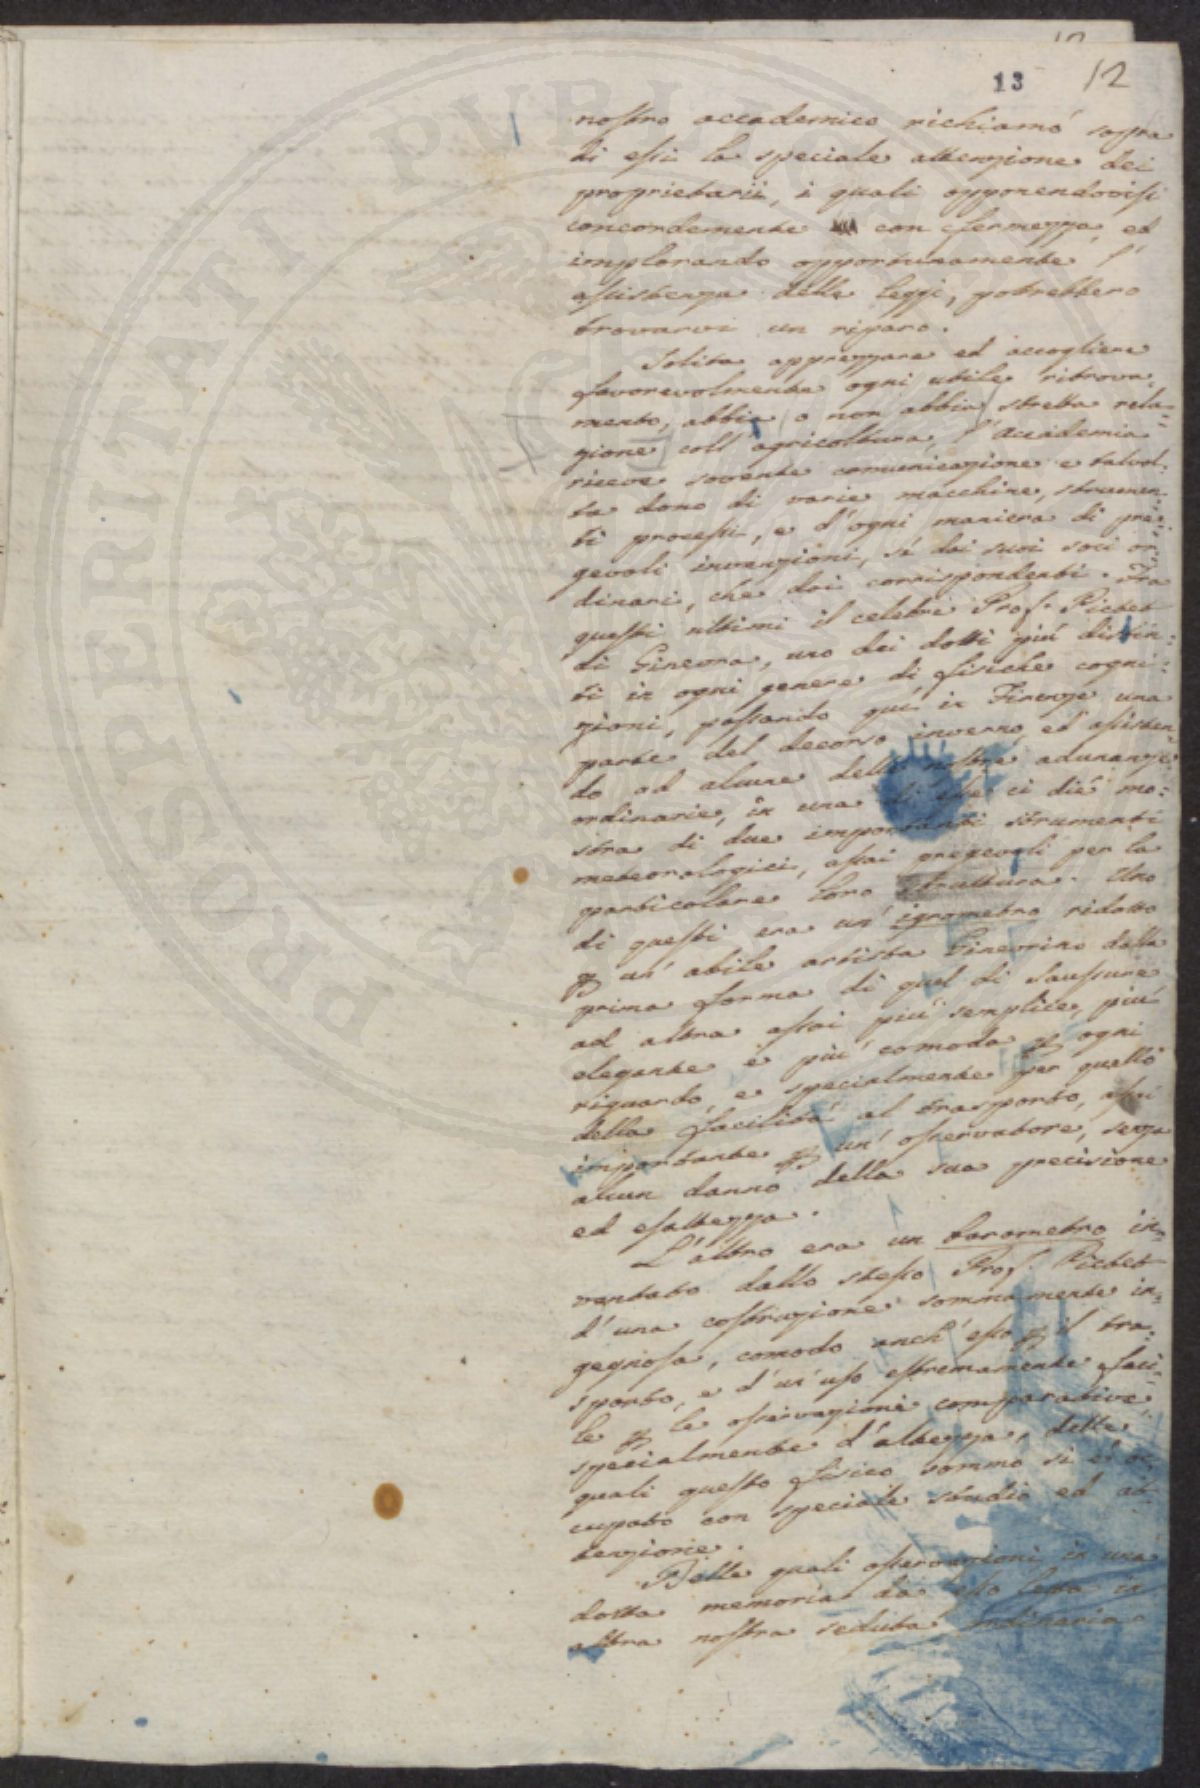 13 12
nostro accademico richiamó sopra
di essi la speciale attenzione dei
proprietarii, i quali opponendovisi
concordemente con fermezza, ed
implorando opportunamente l'
assistenza delle leggi, potrebbero
trovarvi un riparo.
Solita apprezzare ed accogliere
favorevolmente ogni utile ritrova=
mento, abbia o non abbia stretta rela=
zione coll'agricoltura, l'Accademia
riceve sovente comunicazione e talvol=
ta dono di varie macchine, strumen=
ti processi, e d'ogni maniera di pre=
gevoli invenzioni, sì dai suoi soci or=
dinari, che dai corrispondenti. Fra
questi ultimi il celebre Prof. Pictet
di Ginevra, uno dei dotti più distin=
ti in ogni genere di fisiche cogni=
zioni, passando quì in Firenze una
parte del decorso inverno, ed assisten=
do ad alcune delle nostre adunanze
ordinarie, in una di che ci diè mo=
stra di due importanti strumenti
meteorologici, assai pregevoli per la
particolare loro struttura. Uno
di questi era un'igrometro ridotto
da un'abile artista Ginevrino dalla
prima forma di quel di Saussure
ad altra assai più semplice, più
elegante e più comoda per ogni
riguardo, e specialmente per quello
della facilità al trasporto, assai
importante per un'osservatore, senza
alcun danno della sua precisione
ed esattezza.
L'altro era un barometro in=
ventato dallo stesso Prof. Pictet
d'una costruzione sommamente in=
gegnosa, comodo anch'esso per il tra=
sporto, e d'un'uso estremamente faci=
le per le osservazioni comparative
specialmente d'altezza, delle
quali questo fisico sommo si è oc=
cupato con speciale studio ed at=
tenzione.
Delle quali osservazioni in una
dotta memoria da esso letta in
altra nostra seduta ordinaria
PROSPERITATI PUBLICAE